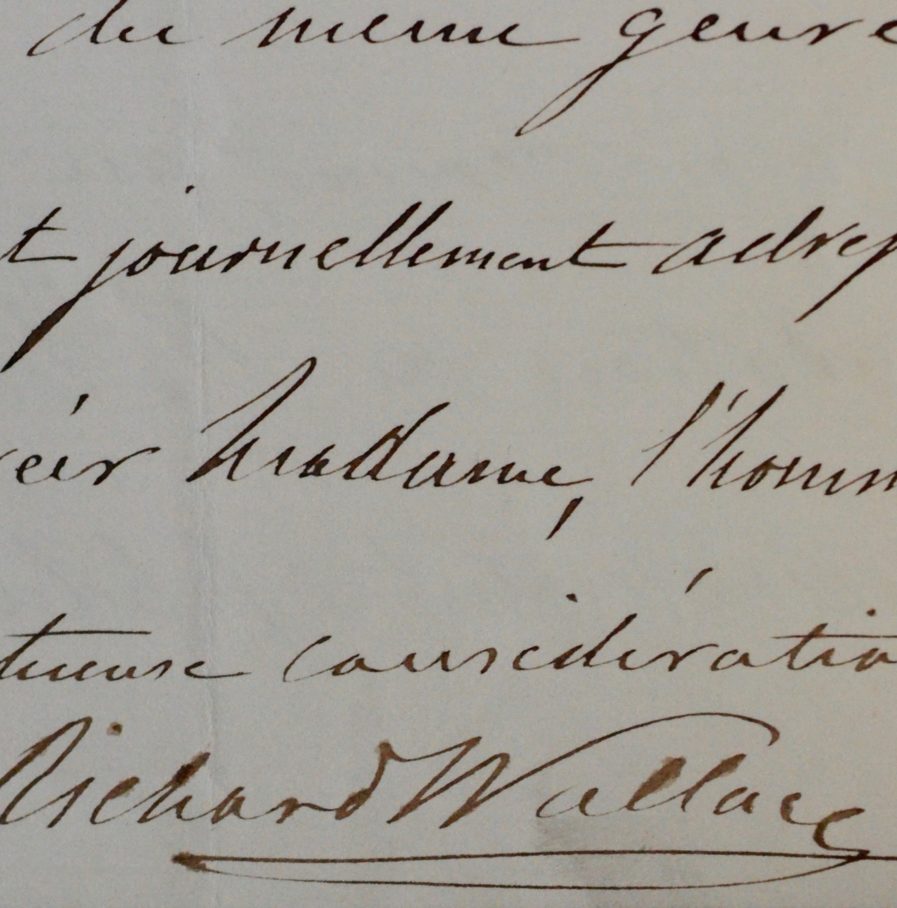 du meme genre
t journellement adres
réer Madame, l'homm
tueuse considératio
Richard Wallace